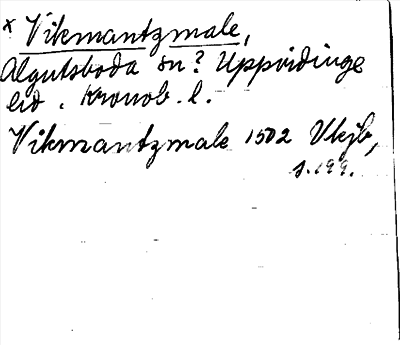 x Vikmantzmale,
Algutsboda sn? Uppvidinge
hd. Kronob. l.
Vikmantzmale 1502 Vkjb,
s. 199.